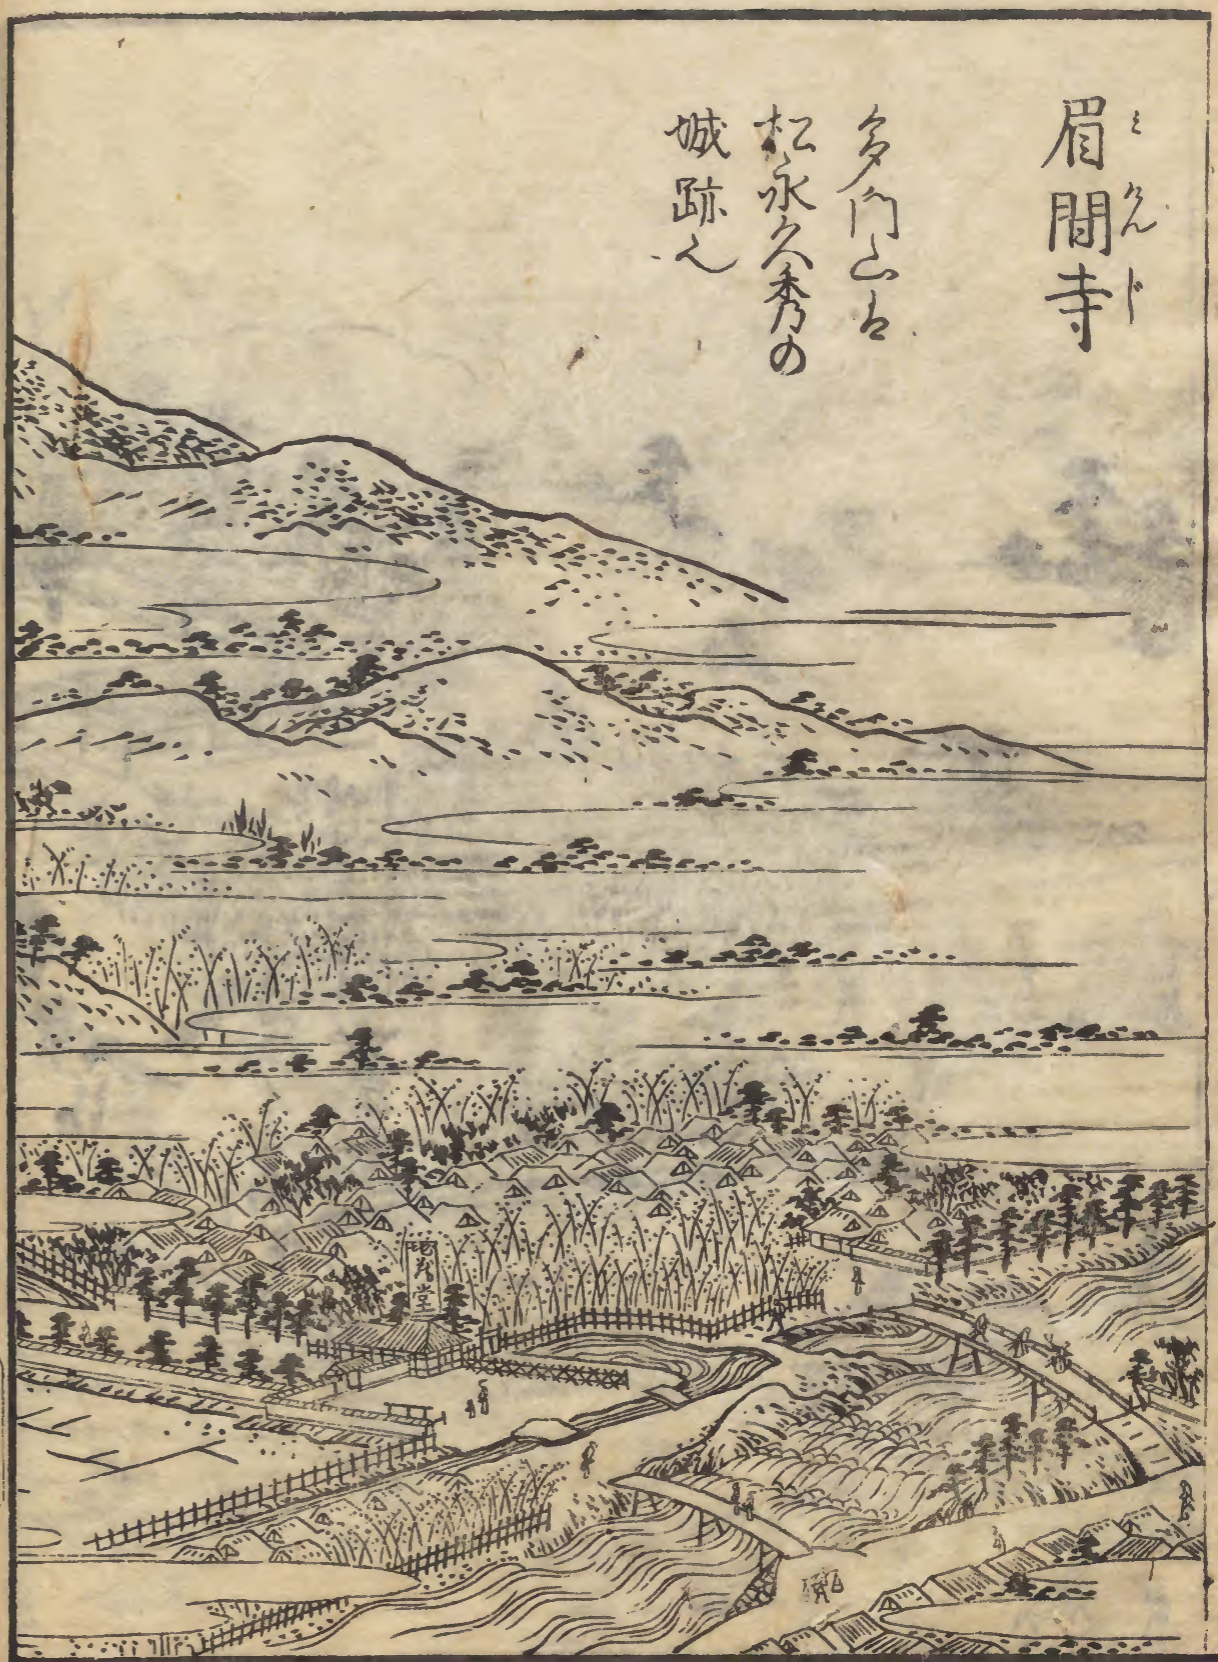 眉間寺
みけんじ
多門山は
松永久秀の
城跡也
地蔵堂